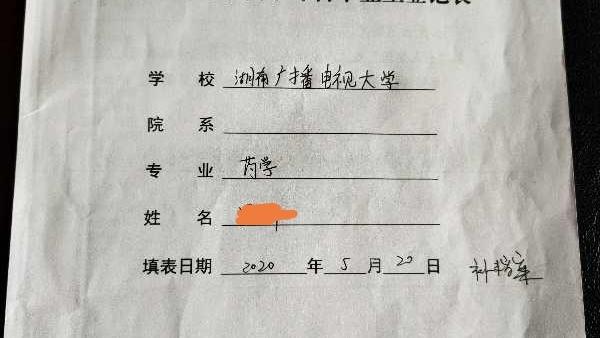 业生登记表
学 校 湖南广播电视大学
院 系
专 业 药学
姓 名
填表日期 2020 年 5 月 20 日 补档案